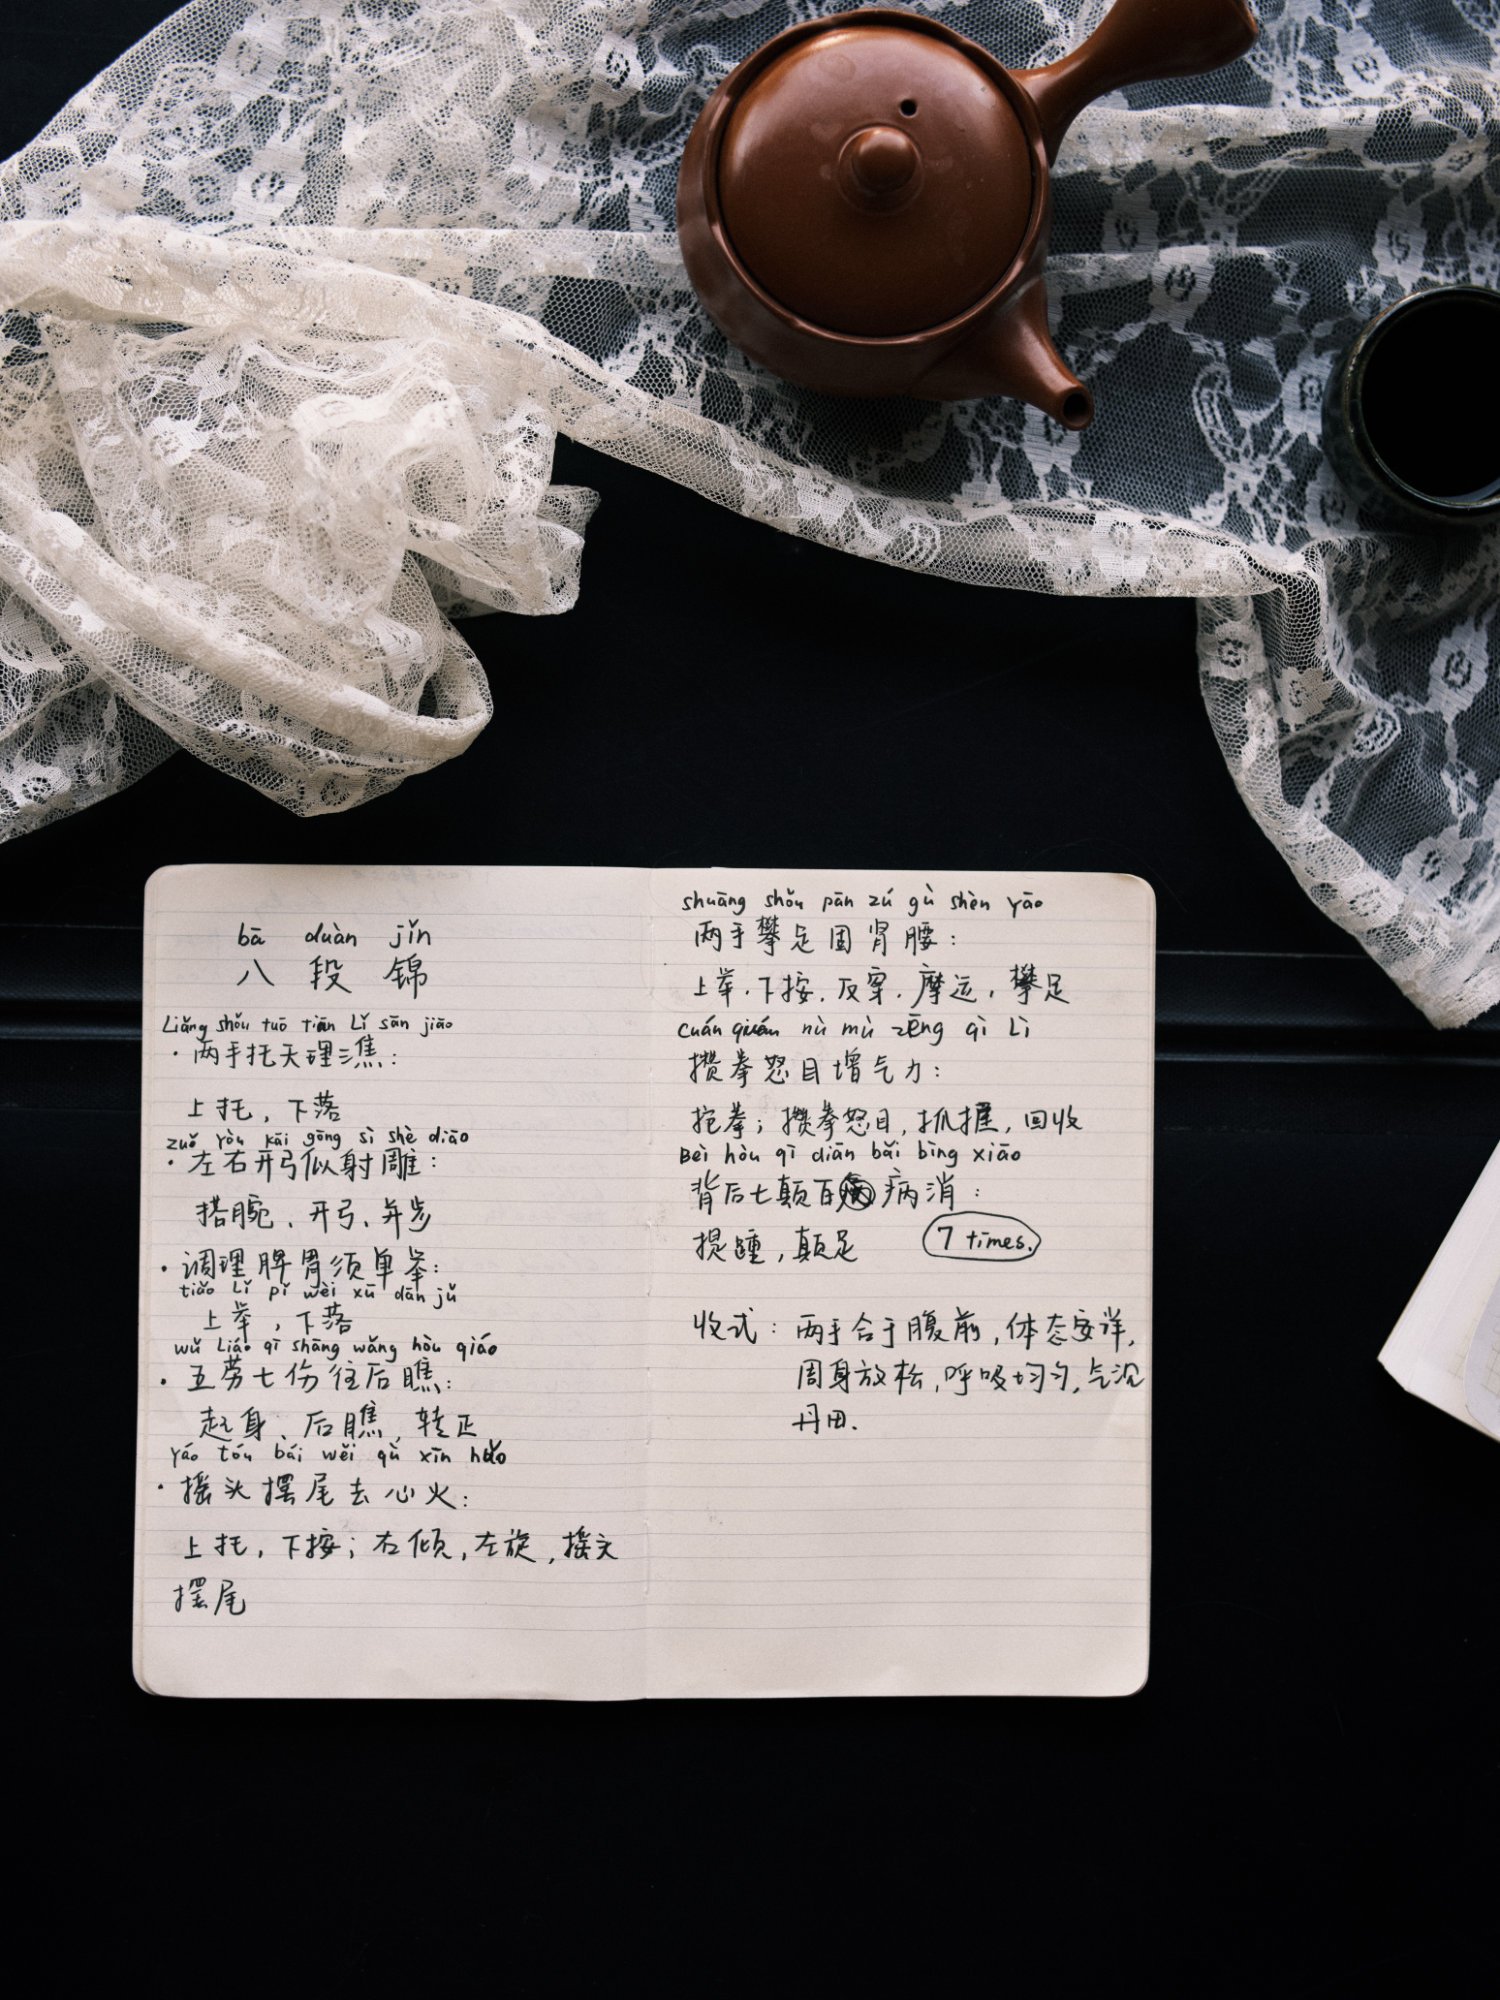 bā duàn jǐn
八 段 锦
Liǎng shǒu tuō tiān Lǐ sān jiāo
· 两手托天理三焦：
上托，下落
zuǒ yòu kāi gōng sì shè diāo
· 左右开弓似射雕：
搭腕、开弓、并步
· 调理脾胃须单举：
tiáo Lǐ pí wèi xū dān jǔ
上举，下落
wǔ Láo qī shāng wǎng hòu qiáo
· 五劳七伤往后瞧：
起身、后瞧，转正
yáo tóu bǎi wěi qù xīn huǒ
· 摇头摆尾去心火：
上托，下按；右倾，左旋，摇头
摆尾
shuāng shǒu pān zú gù shèn yāo
两手攀足固肾腰：
上举、下按、反穿、摩运，攀足
cuán quán nù mù zēng qì Lì
攒拳怒目增气力：
抱拳；攒拳怒目，抓握，回收
Bèi hòu qī diān bǎi bìng xiāo
背后七颠百病消：
提踵，颠足 7 times.
收式：两手合于腹前，体态安详，
周身放松，呼吸均匀，气沉
丹田.